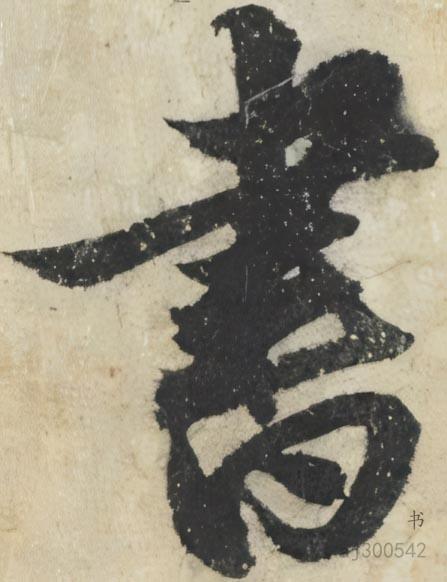 書
书
j300542